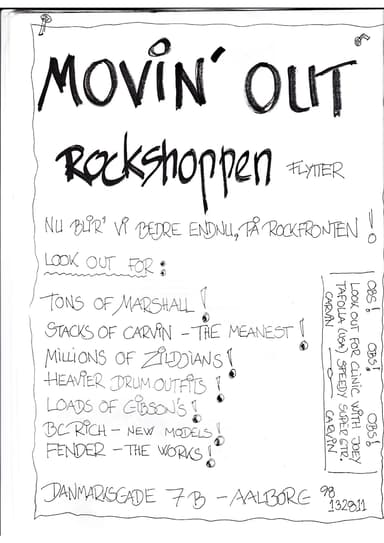 MOVIN' OUT
ROCKSHOPPEN FLYTTER
NU BLIR' VI BEDRE ENDNU, PÅ ROCKFRONTEN!
LOOK OUT FOR:
TONS OF MARSHALL!
STACKS OF CARVIN - THE MEANEST!
MILLIONS OF ZILDJIANS!
HEAVIER DRUM OUTFITS!
LOADS OF GIBSON'S!
BC RICH - NEW MODELS!
FENDER - THE WORKS!
OBS! OBS! OBS!
LOOK OUT FOR CLINIC WITH JOEY
TAFOLLA (USA) SPEEDY SUPER GTR.
CARVIN CARVIN
DANMARKSGADE 7B - AALBORG 98
132811